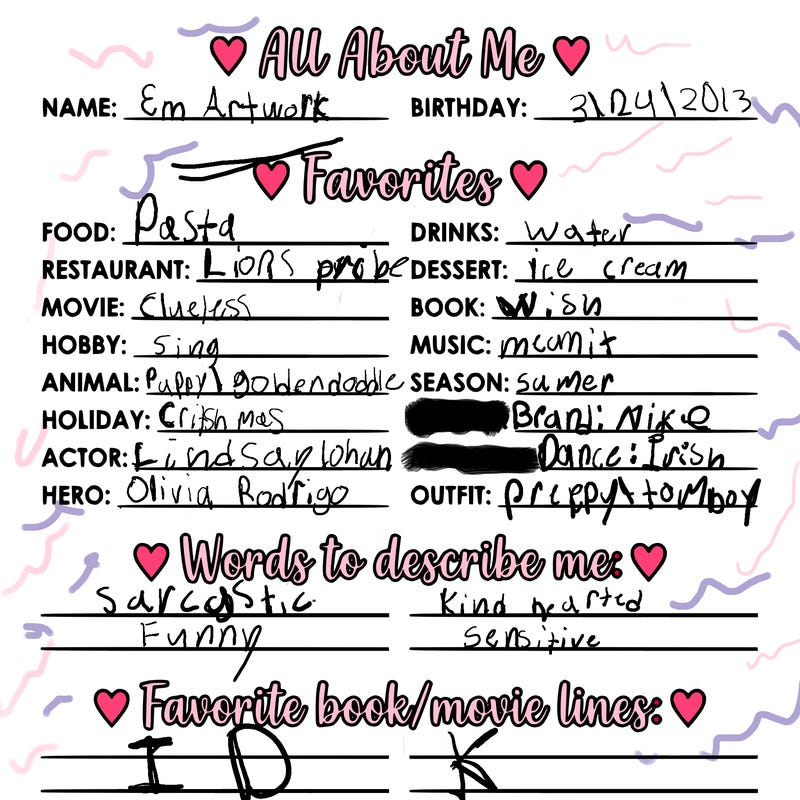 All About Me
NAME: Em Artwork BIRTHDAY: 3\24\2013
Favorites
FOOD: Pasta DRINKS: water
RESTAURANT: Lions pribe DESSERT: ice cream
MOVIE: Clueless BOOK: Wish
HOBBY: Sing MUSIC:
ANIMAL: Puppy\goldendoodle SEASON: sumer
HOLIDAY: Critshmas Brand: Nike
ACTOR: Lindsay lohan Dance: Irish
HERO: Olivia Rodrigo OUTFIT: preppy\tomboy
Words to describe me:
Sarcastic Kind hearted
Funny Sensitive
Favorite book/movie lines:
I D K